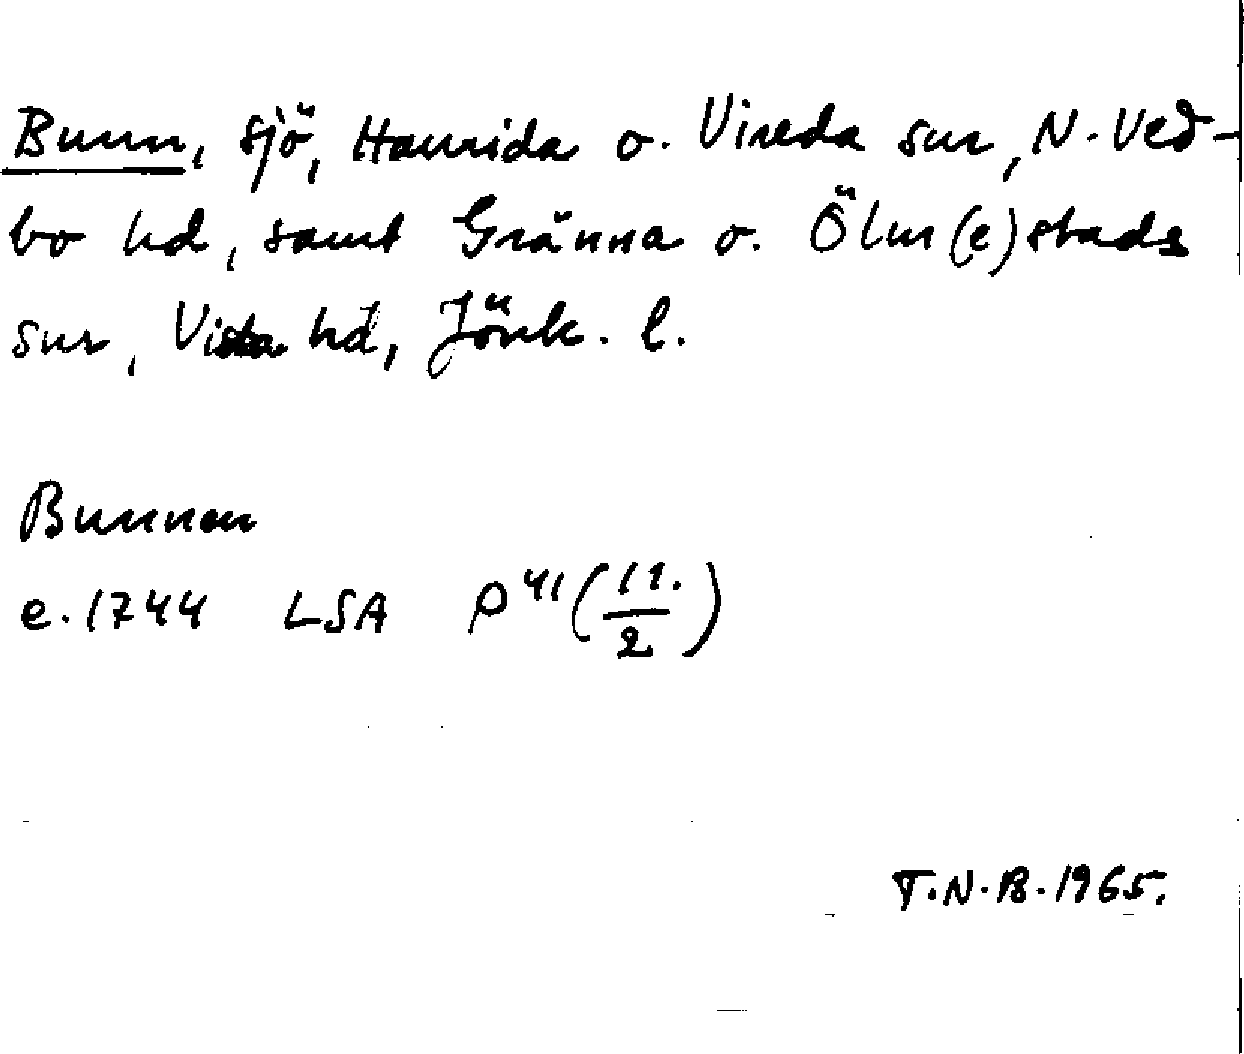 Bunn, sjö, Haurida o. Vireda snr, N. Ved-
bo hd, samt Gränna o. Ölm(e)stads
snr, Vista hd, Jönk. l.
Bunnen
e. 1744 LSA P 41 (11./2)
T.N.B. 1965.